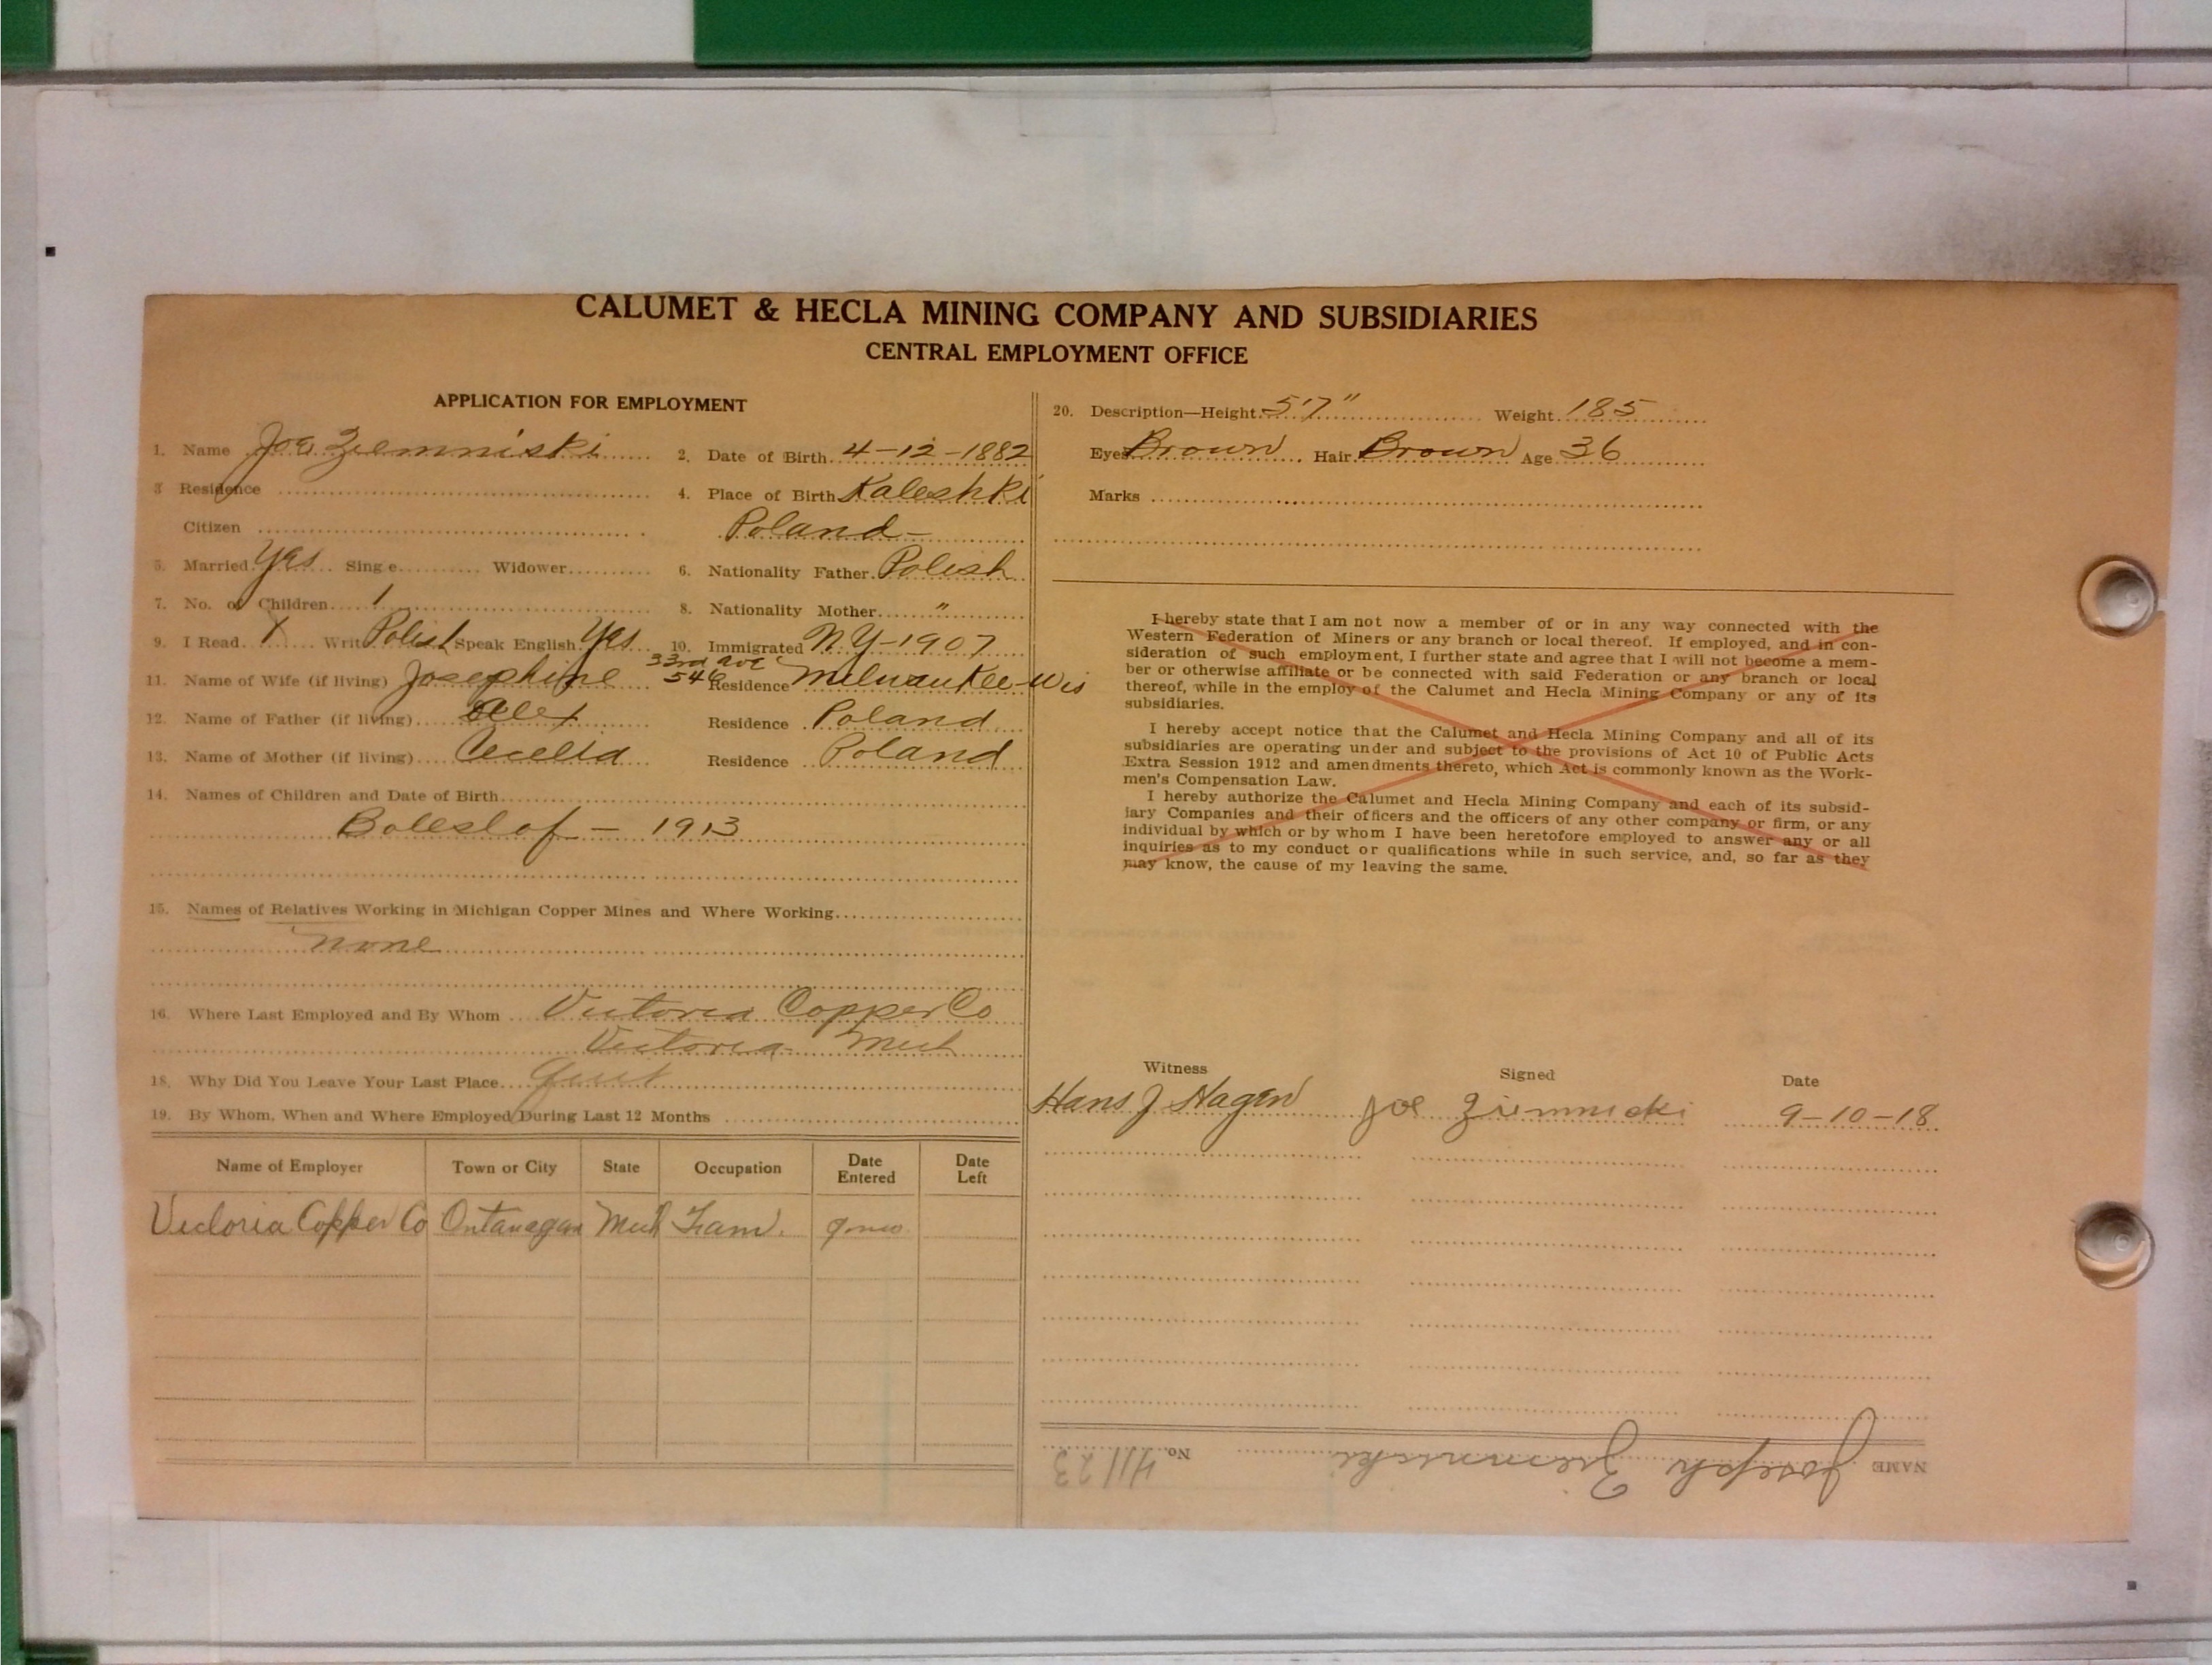 CALUMET & HECLA MINING COMPANY AND SUBSIDIARIES
CENTRAL EMPLOYMENT OFFICE
APPLICATION FOR EMPLOYMENT
1. Name Joe Ziemniski
2. Date of Birth 4-12-1882
3 Residence
4. Place of Birth Kaleshki
Citizen
Poland-
5. Married Yes Sing e Widower
6. Nationality Father Polish
7. No. of Children 1
8. Nationality Mother "
9. I Read X Writ Polish Speak English Yes
10. Immigrated N.Y-1907
33rd ave
11. Name of Wife (if living) Josephine
546 Residence Milwaukee-Wis
12. Name of Father (if living) Alex Residence Poland
13. Name of Mother (if living) Cecelia Residence Poland
14. Names of Children and Date of Birth
Boleslof - 1913
15. Names of Relatives Working in Michigan Copper Mines and Where Working
None
16. Where Last Employed and By Whom Victoria Copper Co
Victoria Mich
18. Why Did You Leave Your Last Place Quit
19. By Whom, When and Where Employed During Last 12 Months
Name of Employer Town or City State Occupation Date Entered Date Left
Victoria Copper Co Ontanagan Mich Tram.
20. Description—Height 5'7" Weight 185
Eyes Brown Hair Brown Age 36
Marks
I hereby state that I am not now a member of or in any way connected with the
Western Federation of Miners or any branch or local thereof. If employed, and in con-
sideration of such employment, I further state and agree that I will not become a mem-
ber or otherwise affiliate or be connected with said Federation or any branch or local
thereof, while in the employ of the Calumet and Hecla Mining Company or any of its
subsidiaries.
I hereby accept notice that the Calumet and Hecla Mining Company and all of its
subsidiaries are operating under and subject to the provisions of Act 10 of Public Acts
Extra Session 1912 and amendments thereto, which Act is commonly known as the Work-
men's Compensation Law.
I hereby authorize the Calumet and Hecla Mining Company and each of its subsid-
iary Companies and their officers and the officers of any other company or firm, or any
individual by which or by whom I have been heretofore employed to answer any or all
inquiries as to my conduct or qualifications while in such service, and, so far as they
may know, the cause of my leaving the same.
Witness Signed Date
Hans J Hagen Joe Ziemnicki 9-10-18
NAME Joseph Ziemniski No. 41123